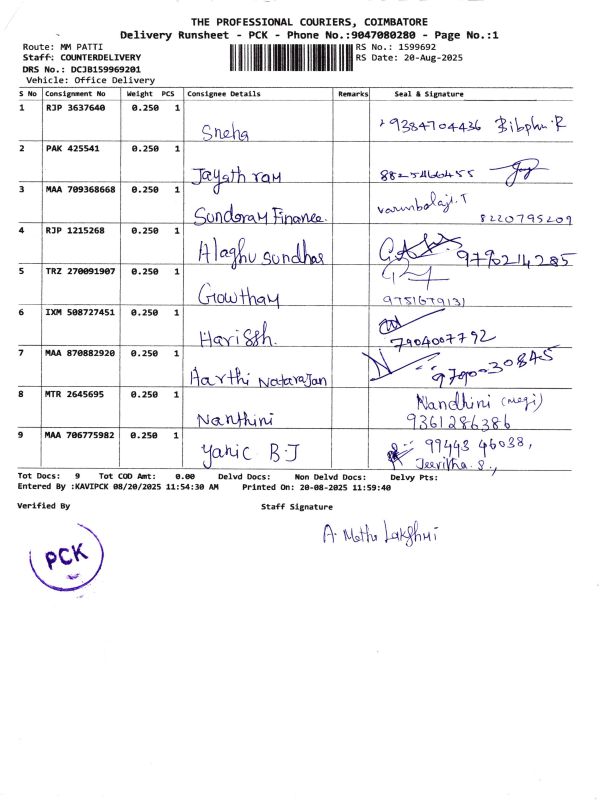 THE PROFESSIONAL COURIERS, COIMBATORE
Delivery Runsheet - PCK - Phone No.:9047080280 - Page No.:1
Route: MM PATTI
RS No.: 1599692
Staff: COUNTERDELIVERY
RS Date: 20-Aug-2025
DRS No.: DCJB159969201
Vehicle: Office Delivery
S No Consignment No Weight PCS Consignee Details Remarks Seal & Signature
1 RJP 3637640 0.250 1
Sneha 9384704436 Bibphu.R
2 PAK 425541 0.250 1
Jayath ram
3 MAA 709368668 0.250 1
Sundoram Finance. varunbalaji.T
8220795209
4 RJP 1215268 0.250 1
Alaghu sundhar 9790214285
5 TRZ 270091907 0.250 1
Gowtham 9751679131
6 IXM 508727451 0.250 1
Harissh. 7904007792
7 MAA 870882920 0.250 1
Harthi Natarajan
8 MTR 2645695 0.250 1
Nandhini (megi)
Nanthini 9361286386
9 MAA 706775982 0.250 1
Yanic B.J 99443 46038,
Jeevitha.S.,
Tot Docs: 9 Tot COD Amt: 0.00 Delvd Docs: Non Delvd Docs: Delvy Pts:
Entered By :KAVIPCK 08/20/2025 11:54:30 AM Printed On: 20-08-2025 11:59:40
Verified By Staff Signature
A. Muthu Lakshmi
PCK